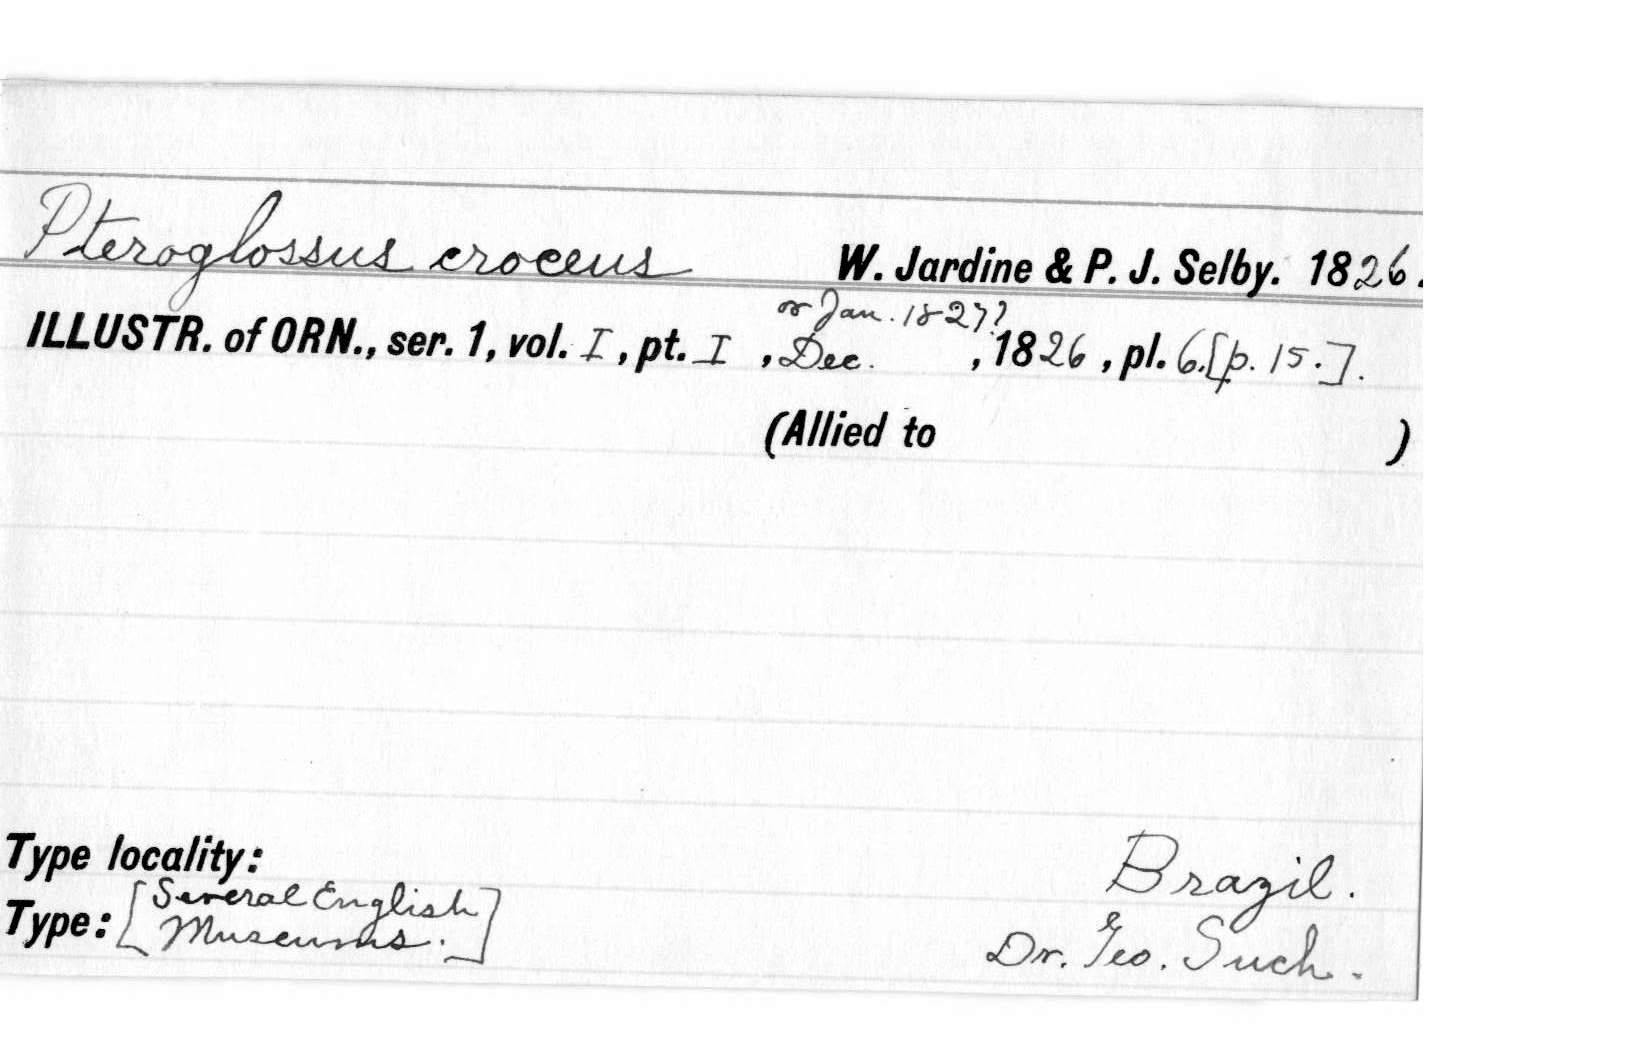 Pteroglossus croceus W. Jardine & P. J. Selby. 1826.
or Jan. 1827?
ILLUSTR. of ORN., ser. 1, vol. I, pt. I, Dec. , 1826, pl. 6.[p. 15.].
(Allied to )
Type locality: Brazil.
Type: [Several English Museums.] Dr. Geo. Such.